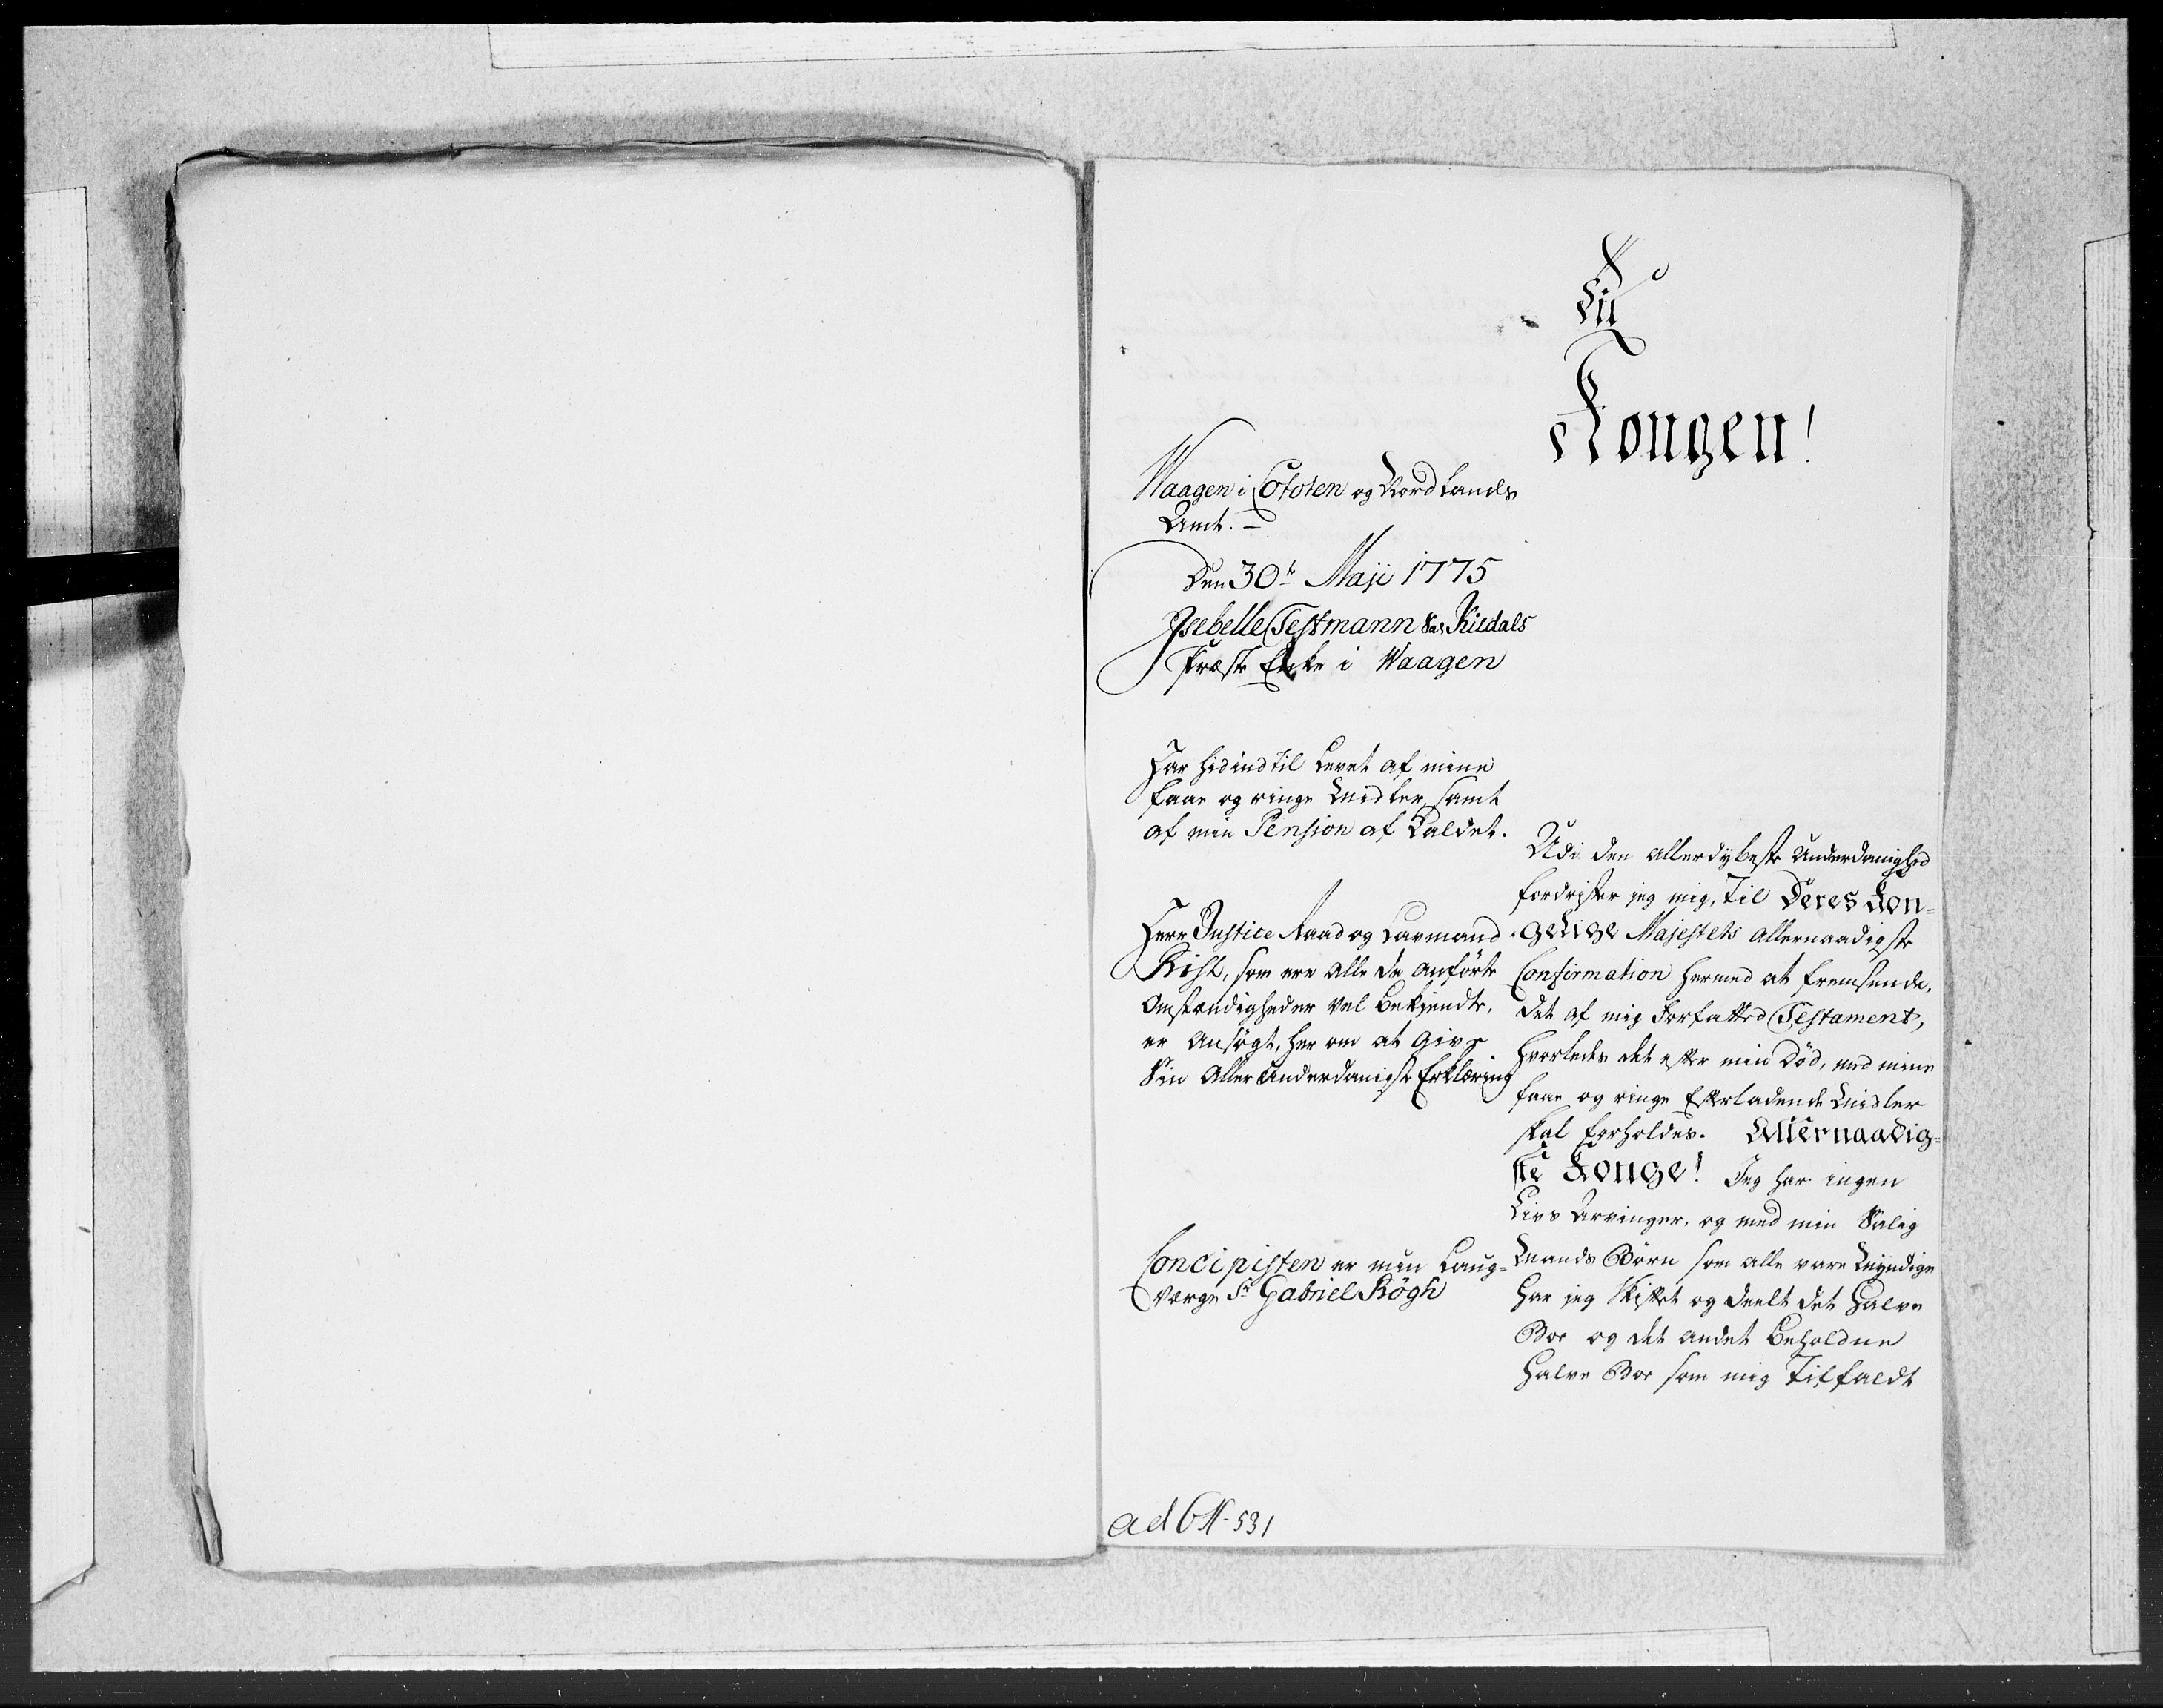 Til
Kongen!
Waagen i Lofoten og Nordlands
Amt. —
Den 30te Maji 1775
Isebelle Testmann Sal. Kildals
Præste Encke i Waagen
Har hidindtil Levet af mine
faae og ringe Midler, samt
af min Pension af Kaldet.
Herr Justice Raad og Laumand
Rist, som ere alle de anførte
Omstændigheder vel bekiendte,
er Ansøgt, her om at give
Sin Aller Underdanigste Erklæring
Concipisten er min Laug-
Værge Sr Gabriel Røgh
Udi den allerdybeste Underdanighed
fordrister jeg mig, Til Deres Kon-
gelige Majestets allernaadigste
Confirmation hermed at fremsende,
det af mig Forfatted Testament,
hvorledes det efter min Død, med mine
faae og ringe Efterladende Midler
skal forholdes. Allernaadig-
ste Konge! Jeg har ingen
Livs Arvinger, og med min Salig
Mands Børn som alle vare Myndige
har jeg Skiftet og deelt det halve
Boe og det andet beholdne
halve Boe som mig Tilfaldt
ad N 531